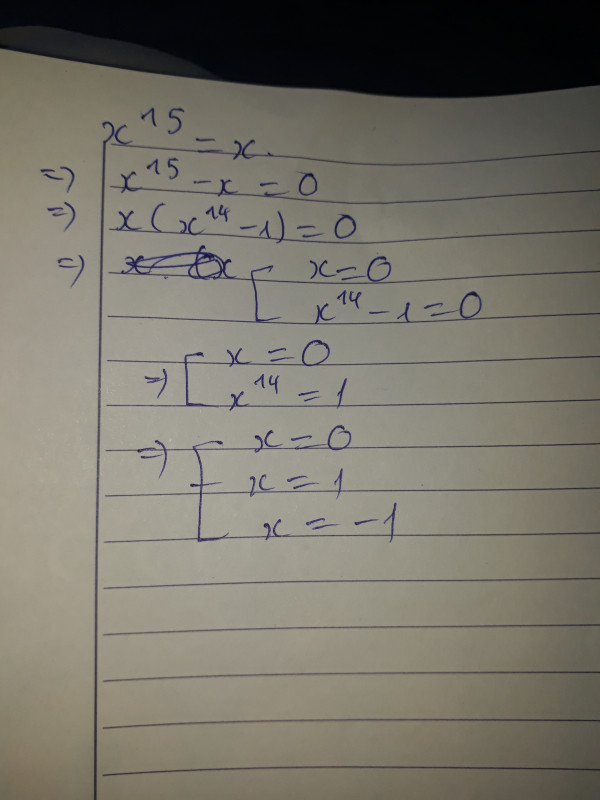 x¹⁵ = x.
=) x¹⁵ - x = 0
=) x(x¹⁴ - 1) = 0
=) [ x = 0
x¹⁴ - 1 = 0
=) [ x = 0
x¹⁴ = 1
=) [ x = 0
x = 1
x = -1